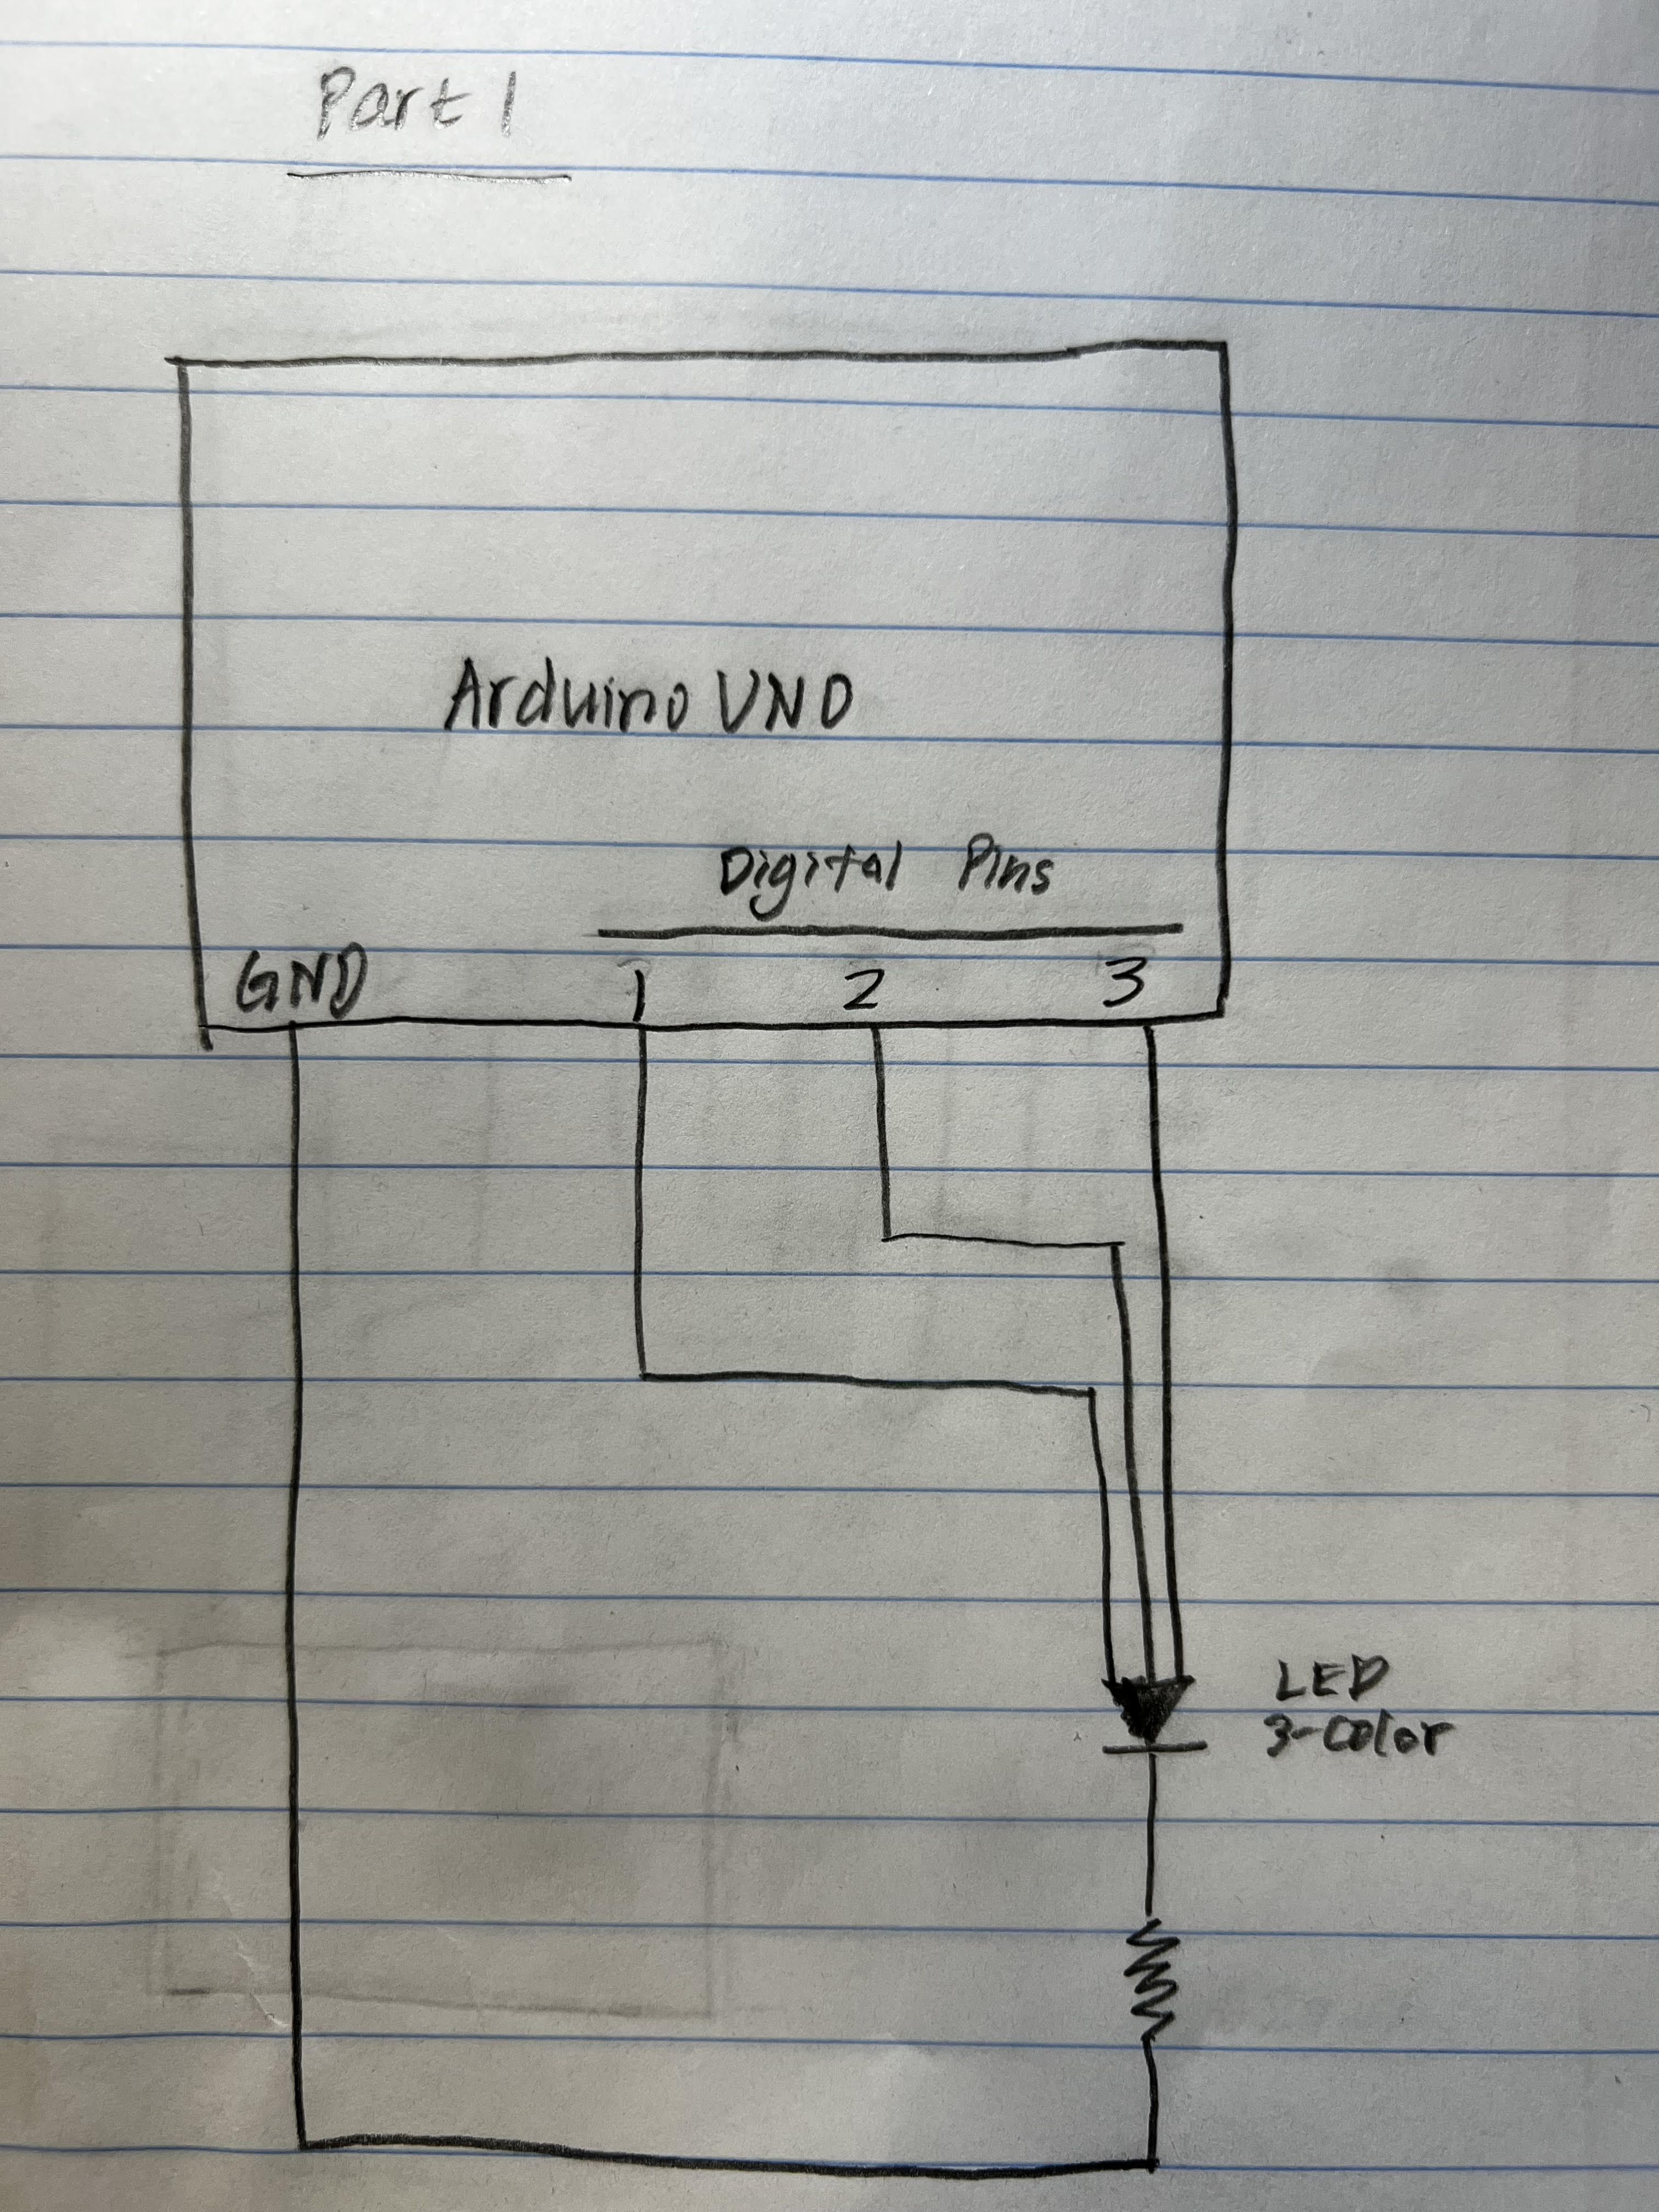 Part 1
Arduino UNO
Digital Pins
GND 1 2 3
LED
3-Color